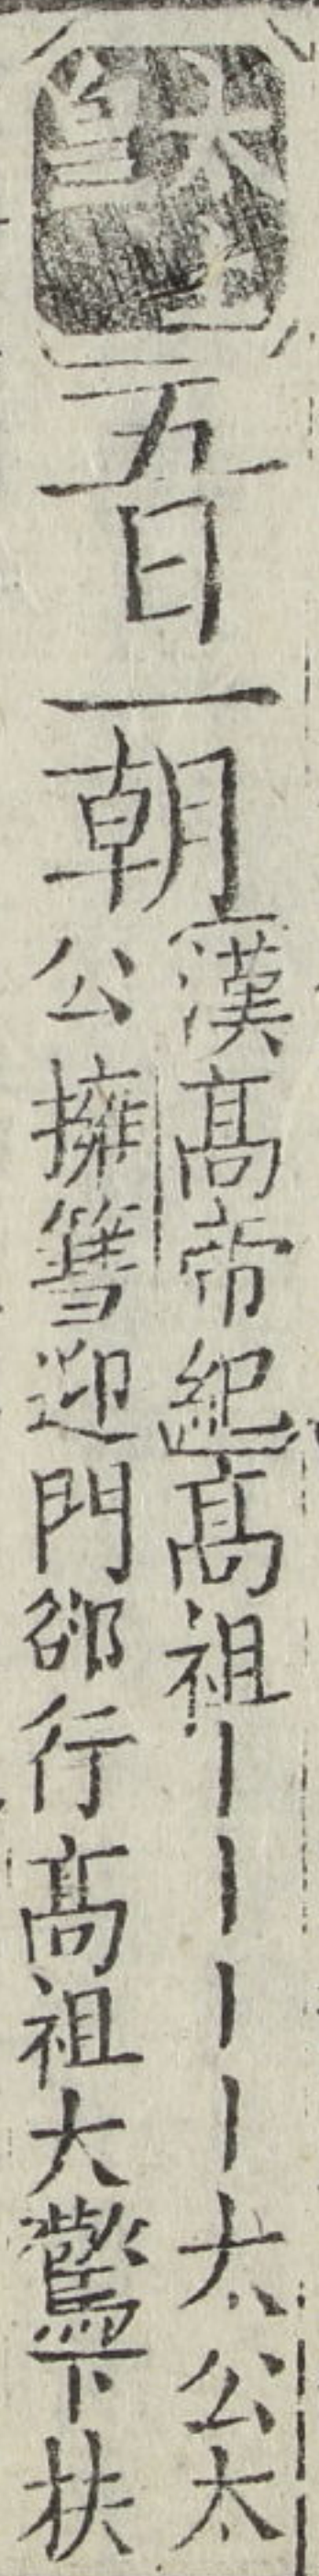 太上皇
五日一朝
漢高帝紀高祖丨丨丨丨太公太
公擁篲迎門郤行高祖大驚下扶